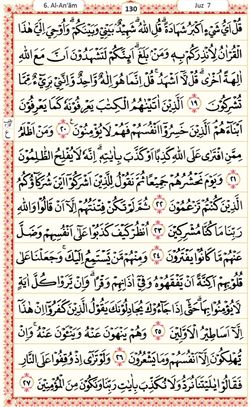 6. Al-An'ām 130 Juz 7
قُلْ اَىُّ شَيْءٍ اَكْبَرُ شَهَادَةً ۗ قُلِ اللّٰهُ ۗ شَهِيْدٌۢ بَيْنِيْ وَبَيْنَكُمْ ۗ وَاُوْحِيَ اِلَيَّ هٰذَا
الْقُرْاٰنُ لِاُنْذِرَكُمْ بِهٖ وَمَنْۢ بَلَغَ ۗ اَىِٕنَّكُمْ لَتَشْهَدُوْنَ اَنَّ مَعَ اللّٰهِ
اٰلِهَةً اُخْرٰى ۗ قُلْ لَّآ اَشْهَدُ ۚ قُلْ اِنَّمَا هُوَ اِلٰهٌ وَّاحِدٌ وَّاِنَّنِيْ بَرِيْۤءٌ مِّمَّا
تُشْرِكُوْنَ ۝١٩ اَلَّذِيْنَ اٰتَيْنٰهُمُ الْكِتٰبَ يَعْرِفُوْنَهٗ كَمَا يَعْرِفُوْنَ
اَبْنَاۤءَهُمْ ۘ اَلَّذِيْنَ خَسِرُوْٓا اَنْفُسَهُمْ فَهُمْ لَا يُؤْمِنُوْنَ ۝٢٠ وَمَنْ اَظْلَمُ
مِمَّنِ افْتَرٰى عَلَى اللّٰهِ كَذِبًا اَوْ كَذَّبَ بِاٰيٰتِهٖ ۗ اِنَّهٗ لَا يُفْلِحُ الظّٰلِمُوْنَ
۝٢١ وَيَوْمَ نَحْشُرُهُمْ جَمِيْعًا ثُمَّ نَقُوْلُ لِلَّذِيْنَ اَشْرَكُوْٓا اَيْنَ شُرَكَاۤؤُكُمُ
الَّذِيْنَ كُنْتُمْ تَزْعُمُوْنَ ۝٢٢ ثُمَّ لَمْ تَكُنْ فِتْنَتُهُمْ اِلَّآ اَنْ قَالُوْا وَاللّٰهِ
رَبِّنَا مَا كُنَّا مُشْرِكِيْنَ ۝٢٣ اُنْظُرْ كَيْفَ كَذَبُوْا عَلٰٓى اَنْفُسِهِمْ وَضَلَّ
عَنْهُمْ مَّا كَانُوْا يَفْتَرُوْنَ ۝٢٤ وَمِنْهُمْ مَّنْ يَّسْتَمِعُ اِلَيْكَ ۚ وَجَعَلْنَا عَلٰى
قُلُوْبِهِمْ اَكِنَّةً اَنْ يَّفْقَهُوْهُ وَفِيْٓ اٰذَانِهِمْ وَقْرًا ۗ وَاِنْ يَّرَوْا كُلَّ اٰيَةٍ
لَّا يُؤْمِنُوْا بِهَا ۗ حَتّٰٓى اِذَا جَاۤءُوْكَ يُجَادِلُوْنَكَ يَقُوْلُ الَّذِيْنَ كَفَرُوْٓا اِنْ هٰذَآ
اِلَّآ اَسَاطِيْرُ الْاَوَّلِيْنَ ۝٢٥ وَهُمْ يَنْهَوْنَ عَنْهُ وَيَنْـَٔوْنَ عَنْهُ ۚ وَاِنْ
يُّهْلِكُوْنَ اِلَّآ اَنْفُسَهُمْ وَمَا يَشْعُرُوْنَ ۝٢٦ وَلَوْ تَرٰٓى اِذْ وُقِفُوْا عَلَى النَّارِ
فَقَالُوْا يٰلَيْتَنَا نُرَدُّ وَلَا نُكَذِّبَ بِاٰيٰتِ رَبِّنَا وَنَكُوْنَ مِنَ الْمُؤْمِنِيْنَ ۝٢٧